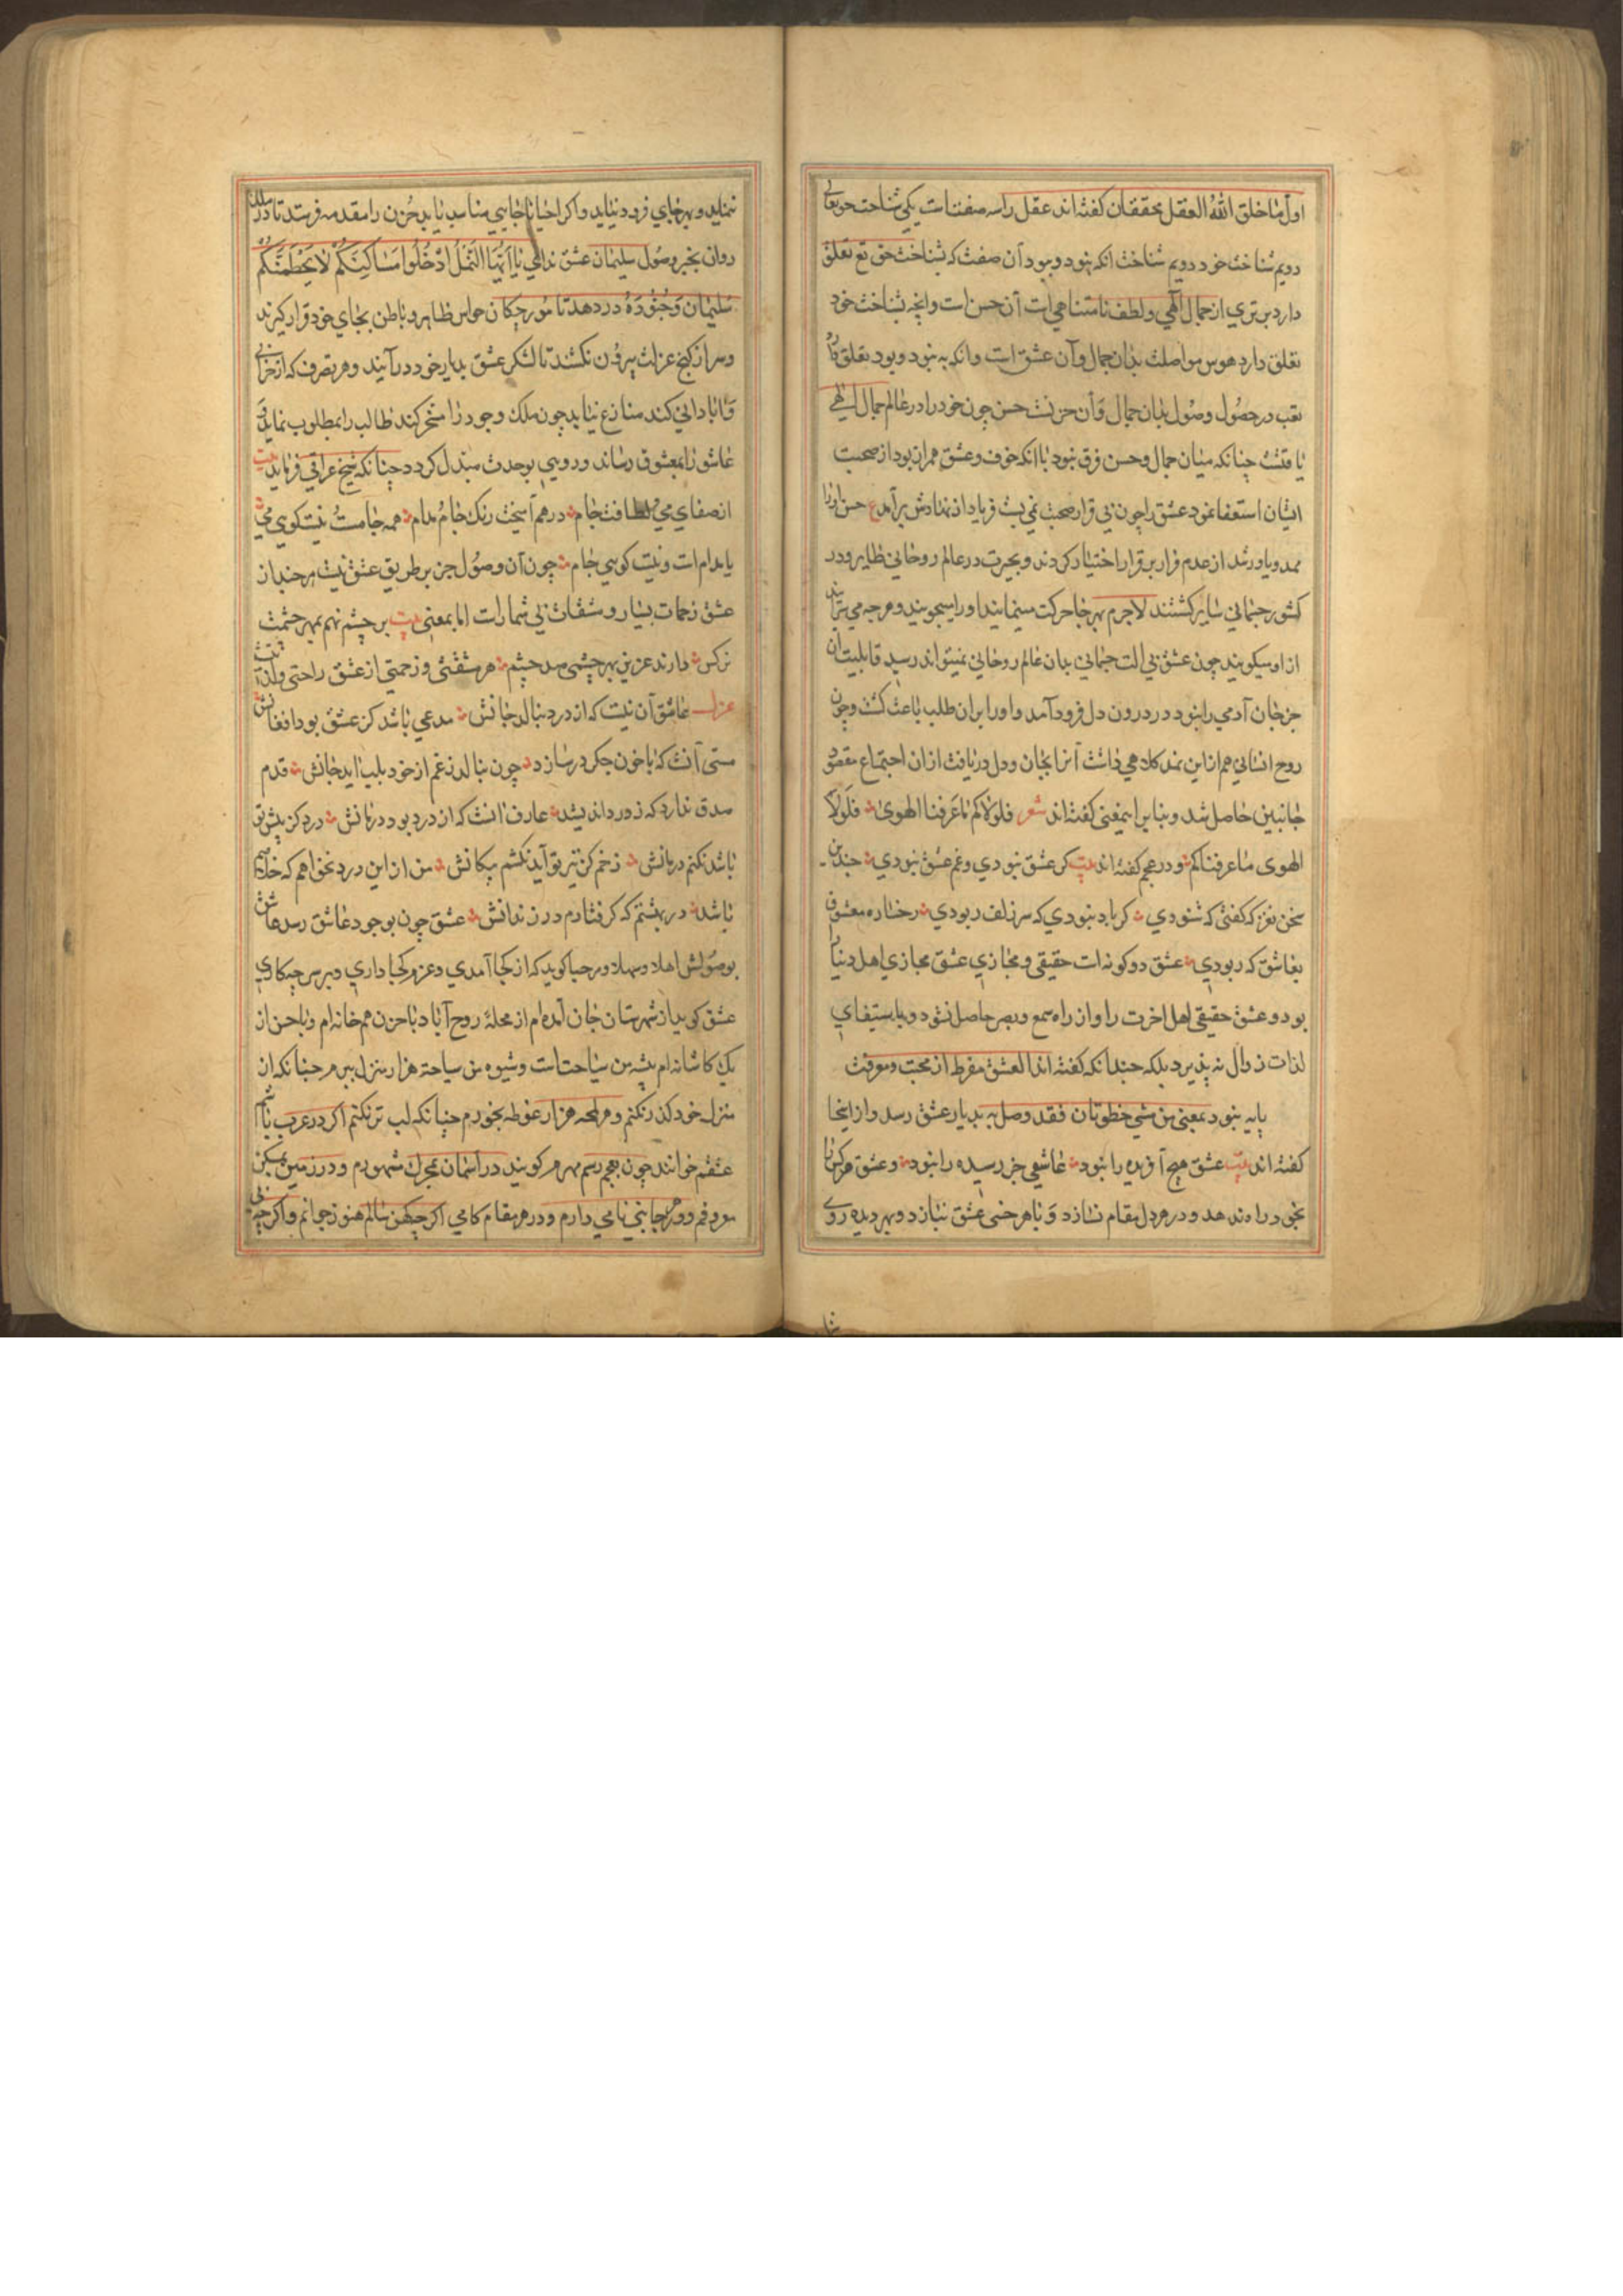 اول ما خلق الله العقل محققان كفته اند عقل را سه صفتست يكي شناخت حق تعالى
دويم شناخت خود دويم شناخت انكه نبود و ببود آن صفت كه بشناخت حق تع تعلق
دارد برتري از جمال الهي و لطف نامتناهي است آن حسن است و انچه بشناخت خود
تعلق دارد هوس مواصلت بدان جمال و آن عشق است و انكه به نبود و بود تعلق دارد
تعب در حصول وصول بدان جمال و آن حزنست حسن چون خود را در عالم جمال الهي
يافت چنانكه ميان جمال و حسن فرق نبود با انكه خوف و عشق همراز بود از صحبت
ايشان استعفا نمود عشق را چون بي قرار صحبت نمي بست فرياد از نهادش برآمد ع حسن
ممد و ياور شد از عدم فرار بر قرار اختيار كردند و بحيرت در عالم روحاني ظاهر و در
كشور جسماني ساير كشتند لاجرم بهر جا حركت مينمايند او را ميجويند و هر چه مي
از او ميكويند چون عشق بي الت جسماني بدان عالم روحاني نميتواند رسيد قابليت آن
جز جان آدمي را نبود در درون دل فرود آمد و او را بر ان طلب باعث كشت و چون
روح انساني هم از اين نمد كلاهي داشت آنرا بجان و دل دريافت از ان اجتماع مقصود
جانبين حاصل شد و بنا برا ينمعنى كفته اند شعر فلولاكم ما عرفنا الهوى فلولا
الهوى ما عرفناكم و در عجم كفته اند بيت كر عشق نبودي و غم عشق نبودي چندين
سخن نغز كه كفتى كه شنودي كر باد نبودي كه سر زلف ربودي رخساره معشوق
بعاشق كه ربودي عشق دو كونه است حقيقي و مجازي عشق مجازي اهل دنيا را
بود و عشق حقيقي اهل اخرت را و از راه سمع و بصر حاصل نشود و باستيفاي
لذات زوال نه پذيرد بلكه چندانكه كفته اند العشق مفرط از محبت و موقت
پايه نبود بمعنى من شي خطوتان فقد وصل به بديار عشق رسد و از اينجا
كفته اند بيت عشق هيچ آفريده را نبود عاشقي جز رسيده را نبود و عشق هر كس را
بخود راه ندهد و در هر دل مقام نسازد و با هر خسى عشق نبازد و بهر ديده روي
ننمايد و بهر جاي فرود نيايد و اكر احيانا جايي مناسب يابد حزن را مقدمه فرستد تا در
روان بخبر وصول سليمان عشق نداي يا ايها النمل ادخلوا مساكنكم لا يحطمنكم
سليمان و جنوده در دهد تا مورچكان حواس ظاهر و باطن بجاي خود قرار كيرند
و سر از كنج عزلت بيرون نكشند تا لشكر عشق بديار خود درآيند و هر تصرف كه از خرابي
و آباداني كند منازع نيابد چون ملك وجود را مسخر كند طالب را بمطلوب نمايد و
عاشق را بمعشوق رساند و دويي بوحدت مبدل كردد چنانكه شيخ عراقي فرمايد بيت
از صفاي مي و لطافت جام در هم آميخت رنك جام و مدام همه جامست نيست كويي مي
يا مدام است و نيست كويي جام چون آن وصول جز بر طريق عشق نيست هر چند از
عشق زحمات بسيار و مشقات بي شمار است اما بمعنى بيت بر چشم نهم بمهر چشمت
نركس دارند عزيز بهر چشمى صد چشم هر مشقتى و زحمتي از عشق راحتي و لذتست
غزل عاشق آن نيست كه از درد بنالد جانش مدعي باشد كز عشق بود افغانش
مستي آنست كه با خون جكر درسازد چون بنالد ز غم از خود بلب ايد جانش قدم
صدق ندارد كه ز درد انديشد عارف آنست كه از درد بود درمانش درد كز عشق تو
باشد نكنم درمانش زخم كز تير تو آيد نكشم پيكانش من از اين درد نخواهم كه خلاصم
باشد در بهشتم كه كرفتارم در زندانش عشق چون بوجود عاشق رسد عاشق
بوصولش اهلا و سهلا و مرحبا كويد كه از كجا آمدي و عزم كجا داري و بر سر چه كاري
عشق كويد از شهرستان جان آمده ام از محلهٔ روح آباد با حزن هم خانه ام و با حسن از
يك كاشانه ام پيشه من سياحت است و شيوه من سياحته هزار منزل ببرم چنانكه از
منزل خود كذر نكنم و هر لمحه هزار غوطه بخورم چنانكه لب تر نكنم اكر در عرب باشم
عشقم خوانند چون بعجم رسم مهرم كويند در آسمان بمحرك مشهورم و در زمين بمسكن
معروفم و در هر جانبي نامي دارم و در هر مقام كامي اكر چه كهن سالم هنوز جوانم و اكر چه بي